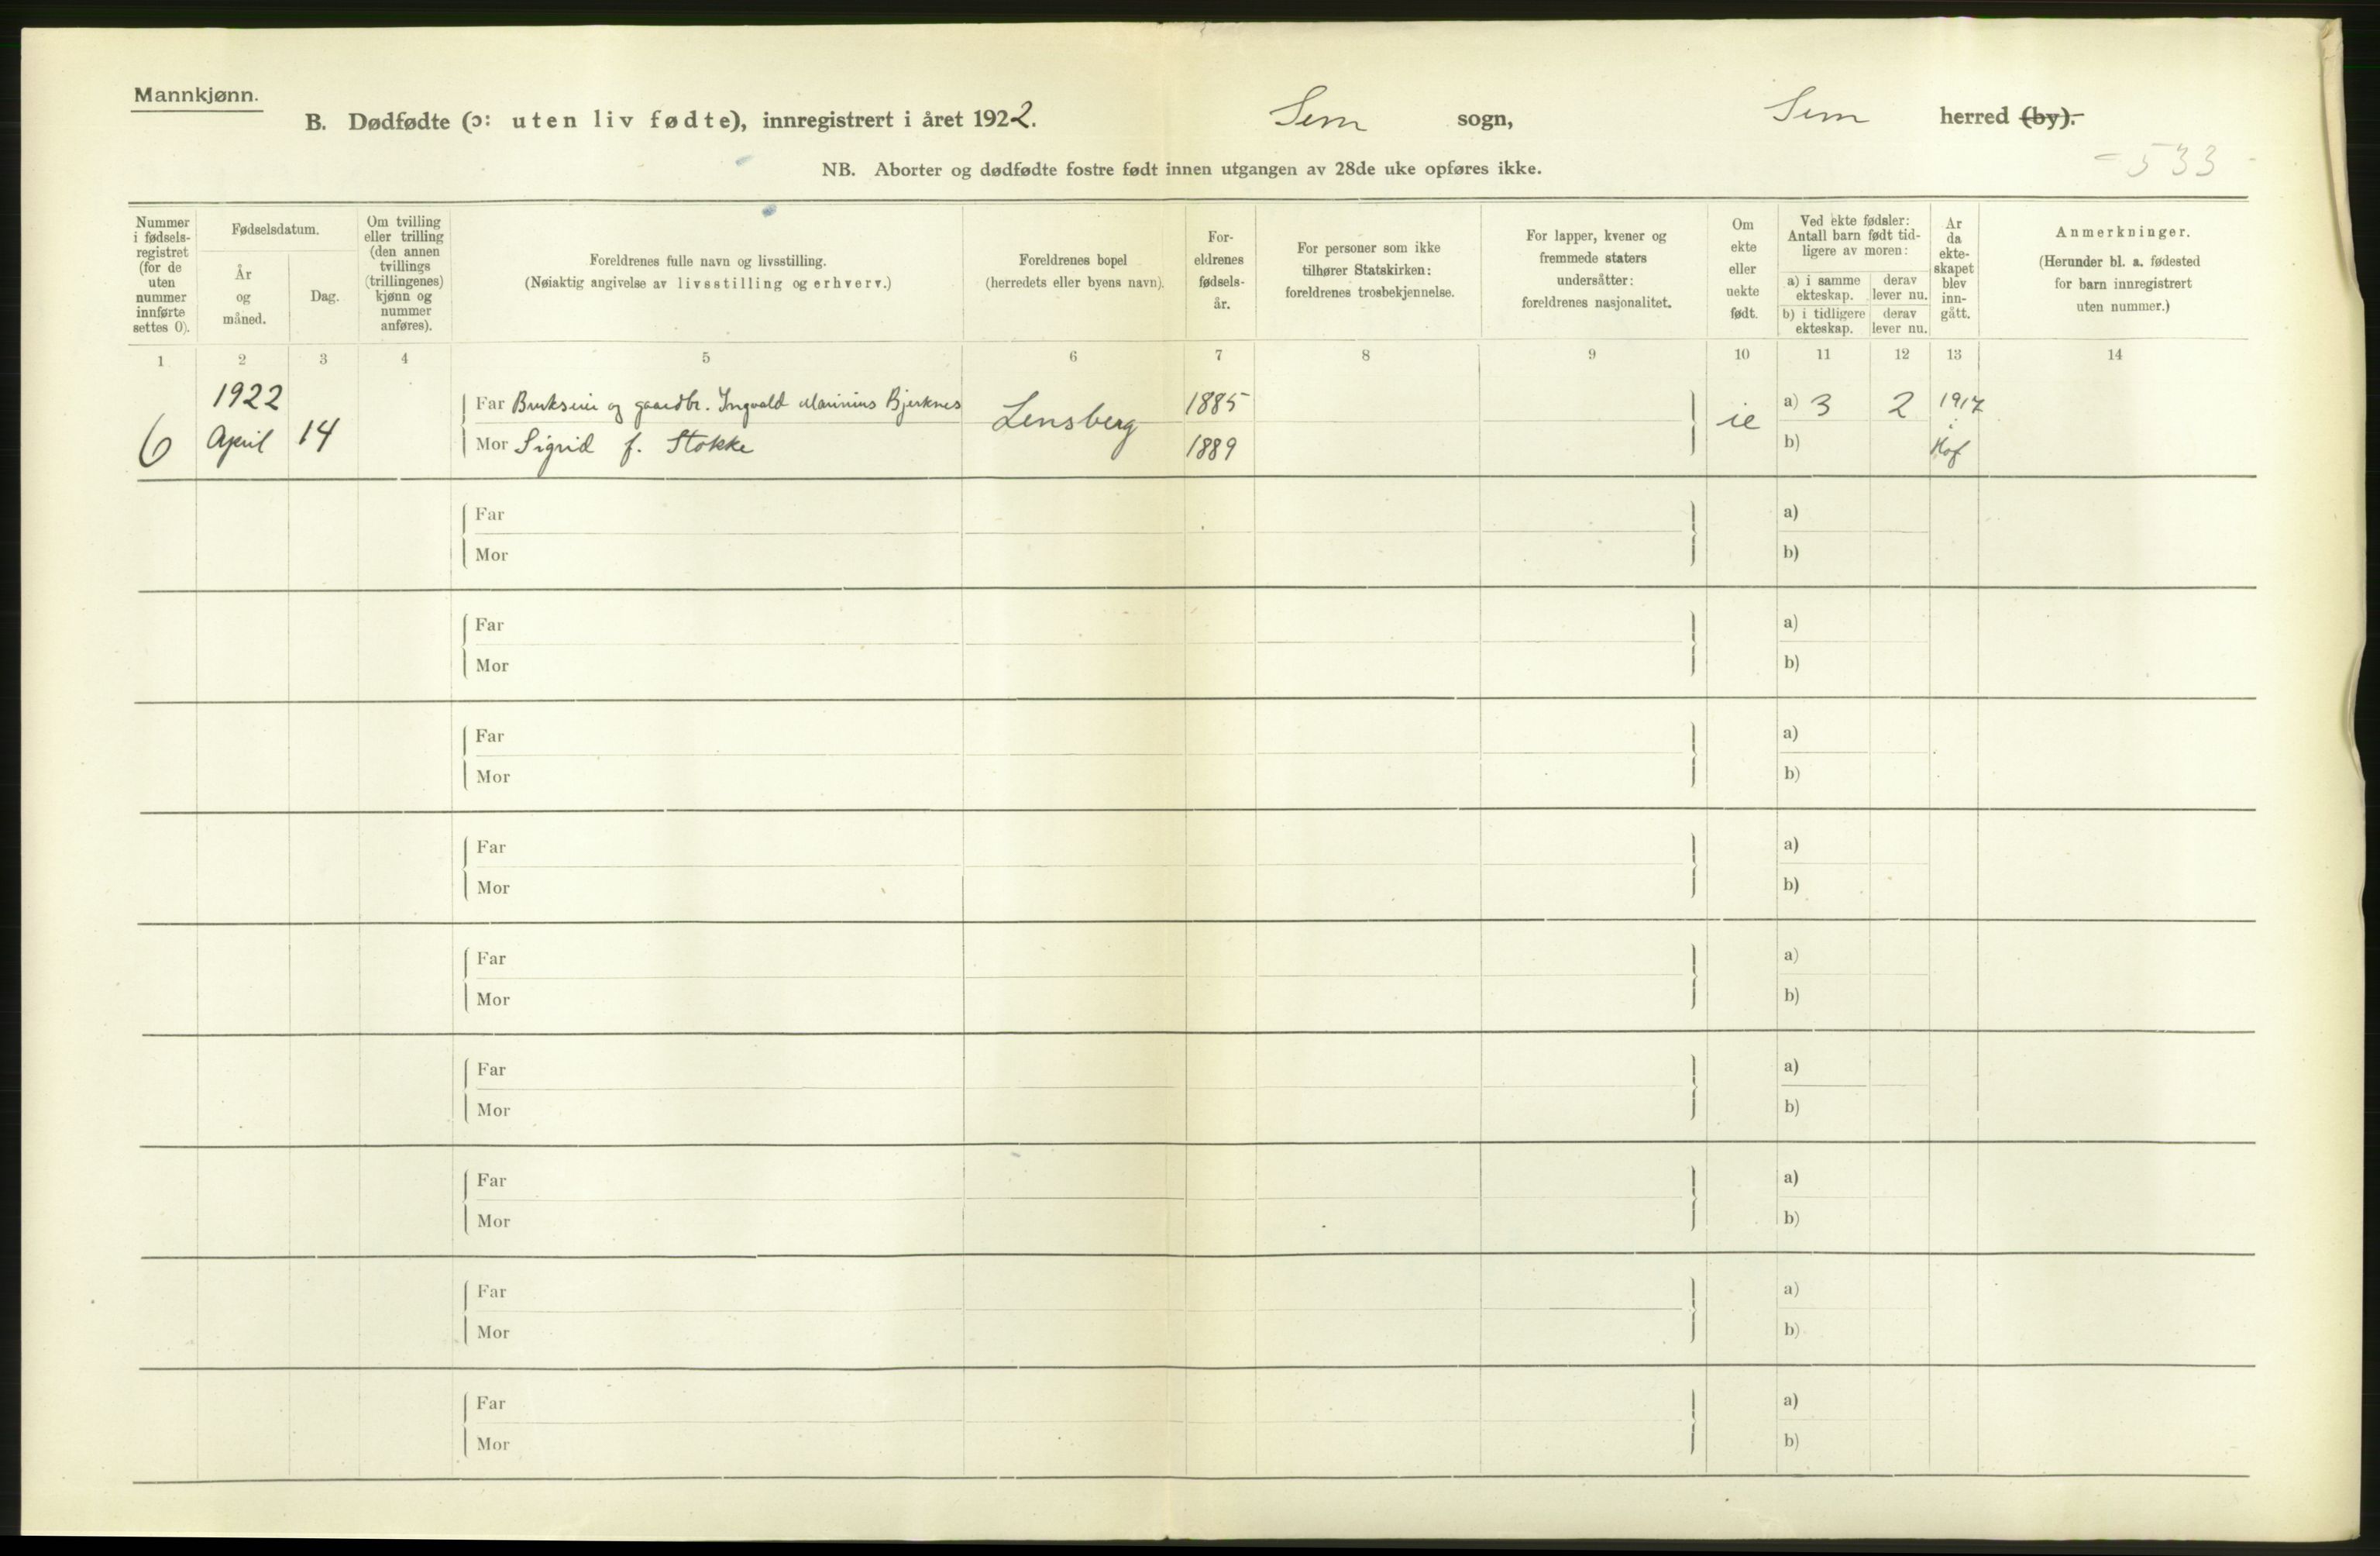 Mannkjønn.
B. Dødfødte (ɔ: uten liv fødte), innregistrert i året 1922. Sem sogn, Sem herred (by).
- 533 -
NB. Aborter og dødfødte fostre født innen utgangen av 28de uke opføres ikke.
Nummer
i fødsels-
registret
(for de
uten
nummer
innførte
settes 0).
Fødselsdatum.
År
og
måned.
Dag.
Om tvilling
eller trilling
(den annen
tvillings
(trillingenes)
kjønn og
nummer
anføres).
Foreldrenes fulle navn og livsstilling.
(Nøiaktig angivelse av livsstilling og erhverv.)
Foreldrenes bopel
(herredets eller byens navn).
For-
eldrenes
fødsels-
år.
For personer som ikke
tilhører Statskirken:
foreldrenes trosbekjennelse.
For lapper, kvener og
fremmede staters
undersåtter:
foreldrenes nasjonalitet.
Om
ekte
eller
uekte
født.
Ved ekte fødsler:
Antall barn født tid-
ligere av moren:
a) i samme
ekteskap.
derav
lever nu.
b) i tidligere
ekteskap.
derav
lever nu.
År
da
ekte-
skapet
blev
inn-
gått.
Anmerkninger.
(Herunder bl. a. fødested
for barn innregistrert
uten nummer.)
1 2 3 4 5 6 7 8 9 10 11 12 13 14
6
1922
April 14
Far Brukseier og gaardbr. Ingvald Marinius Bjerknes
Mor Sigrid f. Stokke
Lensberg
1885
1889
ie
a) 3 2
b)
1917
i
Hof
Far a)
Mor b)
Far a)
Mor b)
Far a)
Mor b)
Far a)
Mor b)
Far a)
Mor b)
Far a)
Mor b)
Far a)
Mor b)
Far a)
Mor b)
Far a)
Mor b)